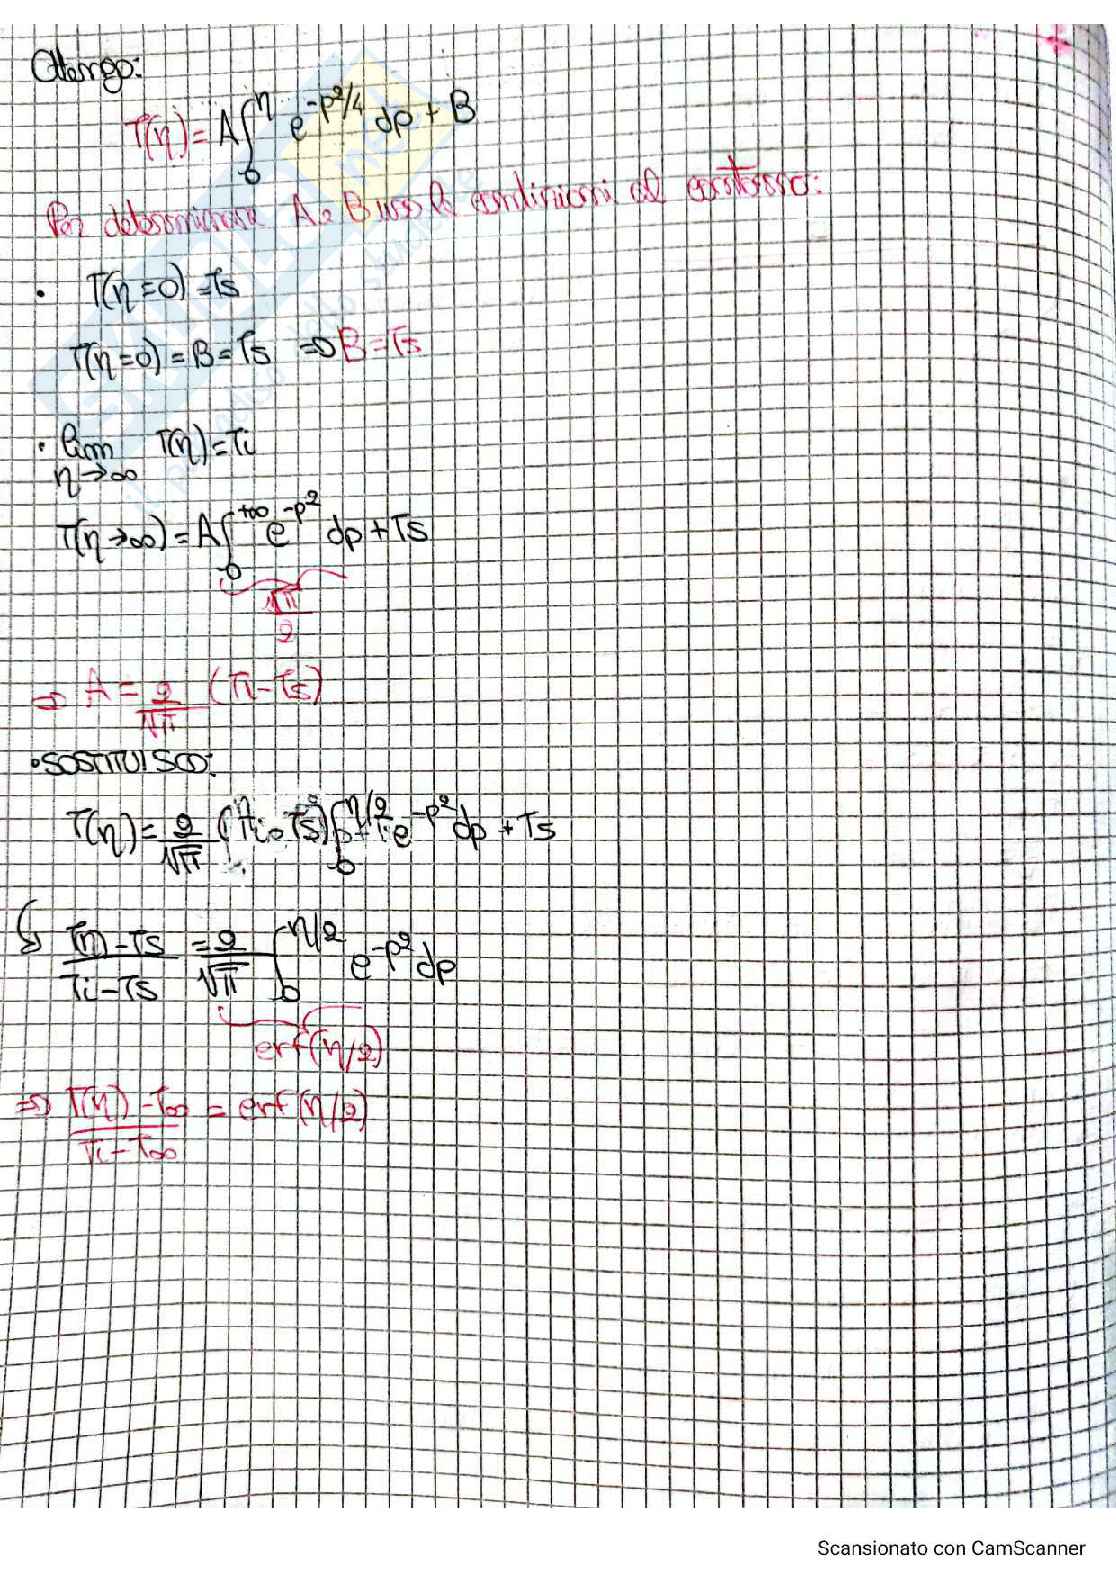 Ottengo:
T(η) = A∫₀^η e^(-p²/4) dp + B
Per determinare A e B uso le condizioni al contorno:
• T(η=0) = Ts
T(η=0) = B = Ts ⇒ B = Ts
• lim η→∞ T(η) = Ti
T(η→∞) = A∫₀^(+∞) e^(-p²) dp + Ts
√π/2
⇒ A = 2/√π (Ti - Ts)
• SOSTITUISCO:
T(η) = 2/√π (Ti - Ts) ∫₀^(η/2) e^(-p²) dp + Ts
↳ (T(η) - Ts)/(Ti - Ts) = 2/√π ∫₀^(η/2) e^(-p²) dp
erf(η/2)
⇒ (T(η) - T∞)/(Ti - T∞) = erf(η/2)
Scansionato con CamScanner